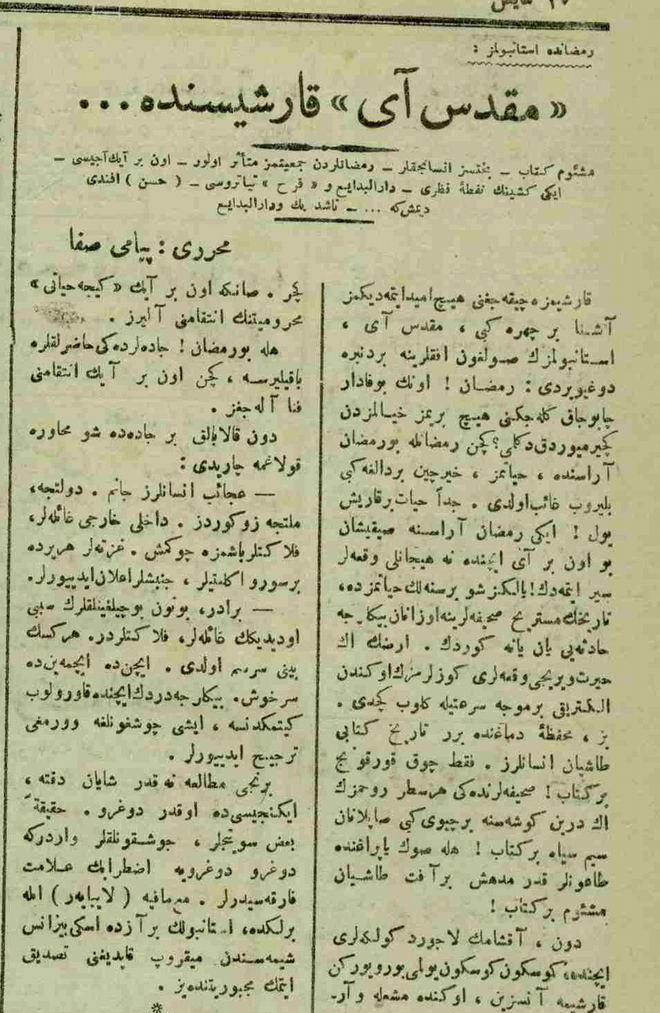 رمضانده استانبولمز :
« مقدس آی » قارشیسنده ...
مشئوم کتاب ــ بختسز انسانجقلر ــ رمضانلردن جمعیتمز متأثر اولور ــ اون بر آیك آجیسی ــ
ایکی کشینك نقطهٔ نظری ــ دارالبدایع و « فرح » تیاتروسی ــ ( حسن ) افندی
دیمش‌که ... ــ ناشد بك ودارالبدایع
محرری : پیامی صفا
قارشیمزه چیقه‌جغنی هیچ امید ایتمه‌دیکمز
آشنا بر چهره کبی ، مقدس آی ،
استانبولمزك صولغون افقلرینه بردنبره
دوغیویردی : رمضان ! اونك بوقادار
چابوجاق کله‌جکنی هیچ بریمز خیالمزدن
کچیرمیوردق دکلمی ؟ کچن رمضانله بورمضان
آراسنده ، حیاتمز ، خیرچین بردالغه کبی
بلیروب غائب اولدی . جداً حیات برقاریش
یول ! ایکی رمضان آراسنه صیقیشان
بو اون بر آی ایچنده نه هیجانلی وقعه‌لر
سیر ایتمه‌دك ! یالکز شو برسنه‌لك حیاتمزده ،
تاریخك مستریح صحیفه‌لرینه اوزانان بیکلرجه
حادثه‌یی یان یانه کوردك . ارضك اك
حیرت ویریجی وقعه‌لری کوزلرمزك اوکندن
الکتریقی برموجه سرعتیله کلوب کچدی .
بز ، محفظهٔ دماغنده برر تاریخ کتابی
طاشیان انسانلرز . فقط چوق قورقونج
برکتاب ! صحیفه‌لرنده‌کی هرسطر روحمزك
اك درین کوشه‌سنه برچیوی کبی صاپلانان
سیم سیاه برکتاب ! هله صوك یاپراغنده
طاعونلر قدر مدهش برآفت طاشیان
مشئوم برکتاب !
دون ، آقشامك لاجورد کولکه‌لری
ایچنده ، کوسکون کوسکون یولی یوروبورکن
قارشیمه آنسزین ، اوکنده مشعله و آر-
کچر . صانکه اون بر آیك « کیجه حیاتی »
محرومیتنك انتقامنی آلیرز .
هله بورمضان ! جاده‌لرده‌کی حاضرلقلره
باقیلیرسه ، کچن اون بر آیك انتقامنی
فنا آله‌جغز .
دون قالابالق بر جاده‌ده شو محاوره
قولاغمه چارپدی :
ــ عجائب انسانلرز جانم . دولتجه ،
ملتجه زوکوردز . داخلی خارجی غائله‌لر ،
فلاکتلر باشمزه چوکمش . غزته‌لر هریرده
برسورو اکلنتیلر ، جنبشلر اعلان ایدییورلر .
ــ برادر ، بوتون بوچیلغینلقلرك سببی
اودیدیکك غائله‌لر ، فلاکتلردر . هرکسك
بینی سرسم اولدی . ایچن‌ده ایچمه‌ین‌ده
سرخوش . بیکلرجه دردك ایچنده قاورولوب
کیتمکدنسه ، ایشی چوشغونلغه وورمغی
ترجیح ایدییورلر .
برنجی مطالعه نه قدر شایان دقته ،
ایکنجیسی‌ده اوقدر دوغرو . حقیقةً
بعض سوینجلر ، جوشقونلقلر واردرکه
دوغرو دوغرویه اضطرابك علامت
فارقه‌سیدرلر . مع‌مافیه ( لایبایر ) ایله
برلکده ، استانبولك برآزده اسکی بیزانس
شیمه‌سندن میقروپ قاپدیغنی تصدیق
ایتمك مجبوریتنده‌یز .
*